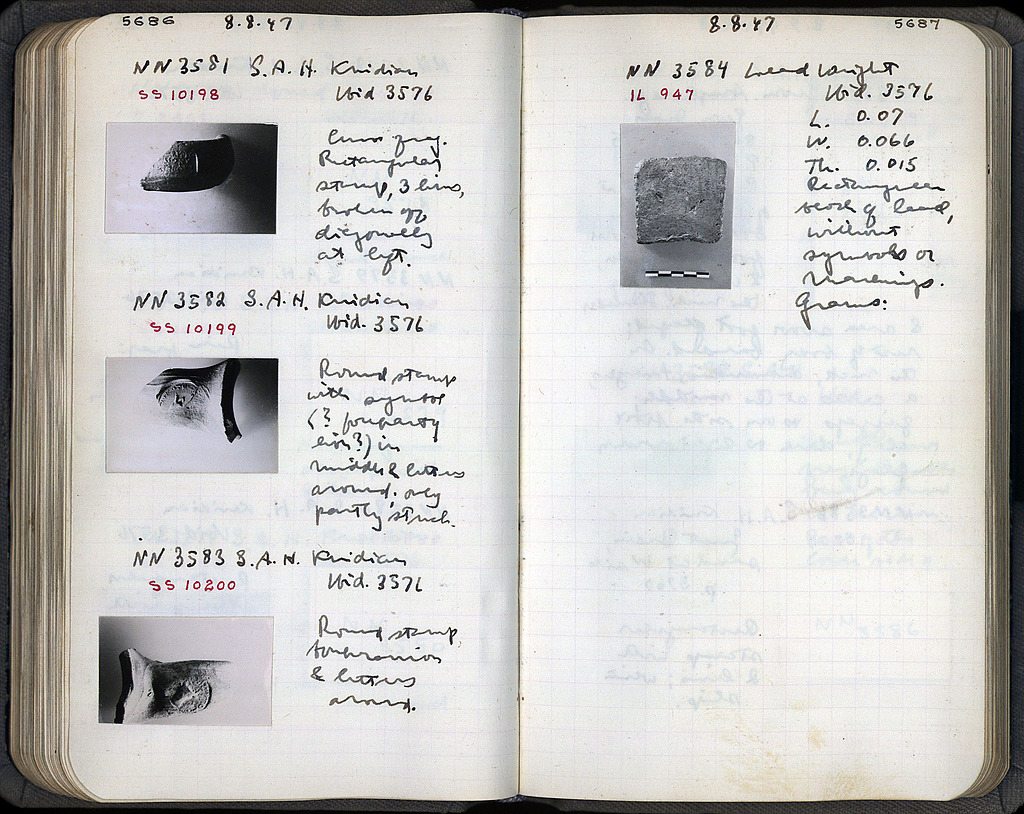 5686 8.8.47
NN 3581 S.A.H. Knidian
SS 10198 Ibid 3576
gray.
Rectangular
stamp, 3 lines,
broken off
diagonally
at left.
NN 3582 S.A.H. Knidian
SS 10199 Ibid. 3576
Round stamp
with symbol
(? forepart
lion?) in
middle & letters
around. only
partly struck.
NN 3583 S.A.H. Knidian
SS 10200 Ibid. 3576
Round stamp,
boukranion
& letters
around.
8.8.47 5687
NN 3584 Lead Weight
IL 947 Ibid. 3576
L. 0.07
W. 0.066
Th. 0.015
Rectangular
block of lead,
without
symbols or
markings.
Grams: